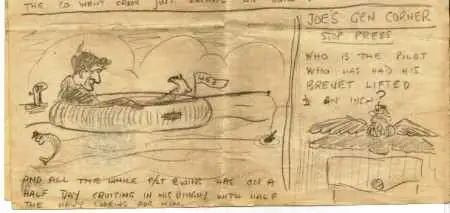 THE CO WENT CROOK JUST
JOE'S GEN CORNER
STOP PRESS
WHO IS THE PILOT
WHO HAS HAD HIS
BREVET LIFTED
½ AN INCH?
AND ALL THE WHILE F/LT EWING HAS ON A
HALF DAY CRUITING IN HIS DINGHY WITH HALF
THE NAVY LOOKING FOR HIM.